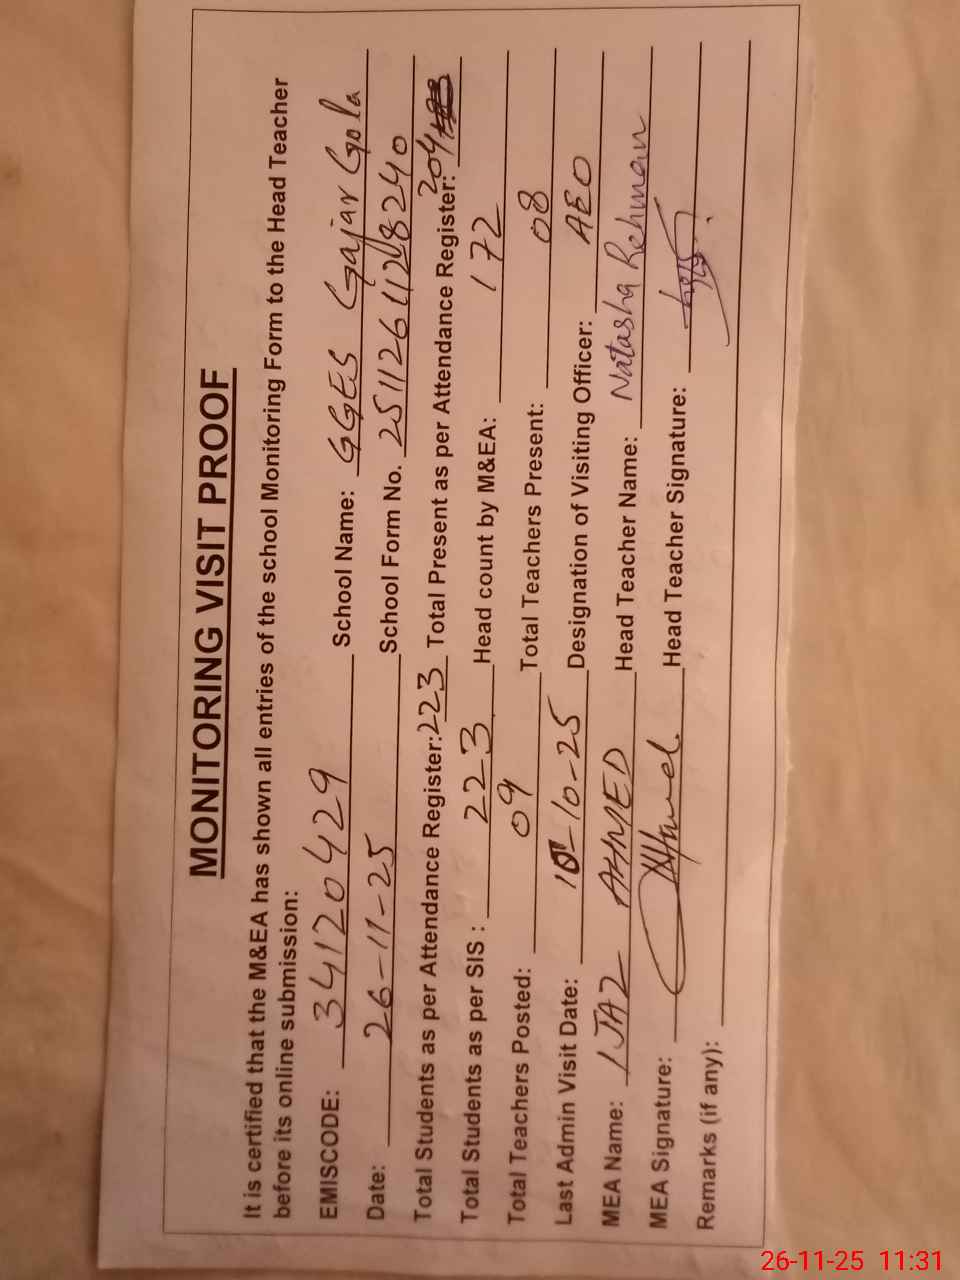 MONITORING VISIT PROOF
It is certified that the M&EA has shown all entries of the school Monitoring Form to the Head Teacher
before its online submission:
EMISCODE: 34120429 School Name: GGES Gajar Gola
Date: 26-11-25 School Form No. 25112611208240
Total Students as per Attendance Register: 223 Total Present as per Attendance Register: 204
Total Students as per SIS : 223 Head count by M&EA: 172
Total Teachers Posted: 09 Total Teachers Present: 08
Last Admin Visit Date: 10-10-25 Designation of Visiting Officer: AEO
MEA Name: IJAZ AHMED Head Teacher Name: Natasha Rehman
MEA Signature: Head Teacher Signature:
Remarks (if any):
26-11-25 11:31